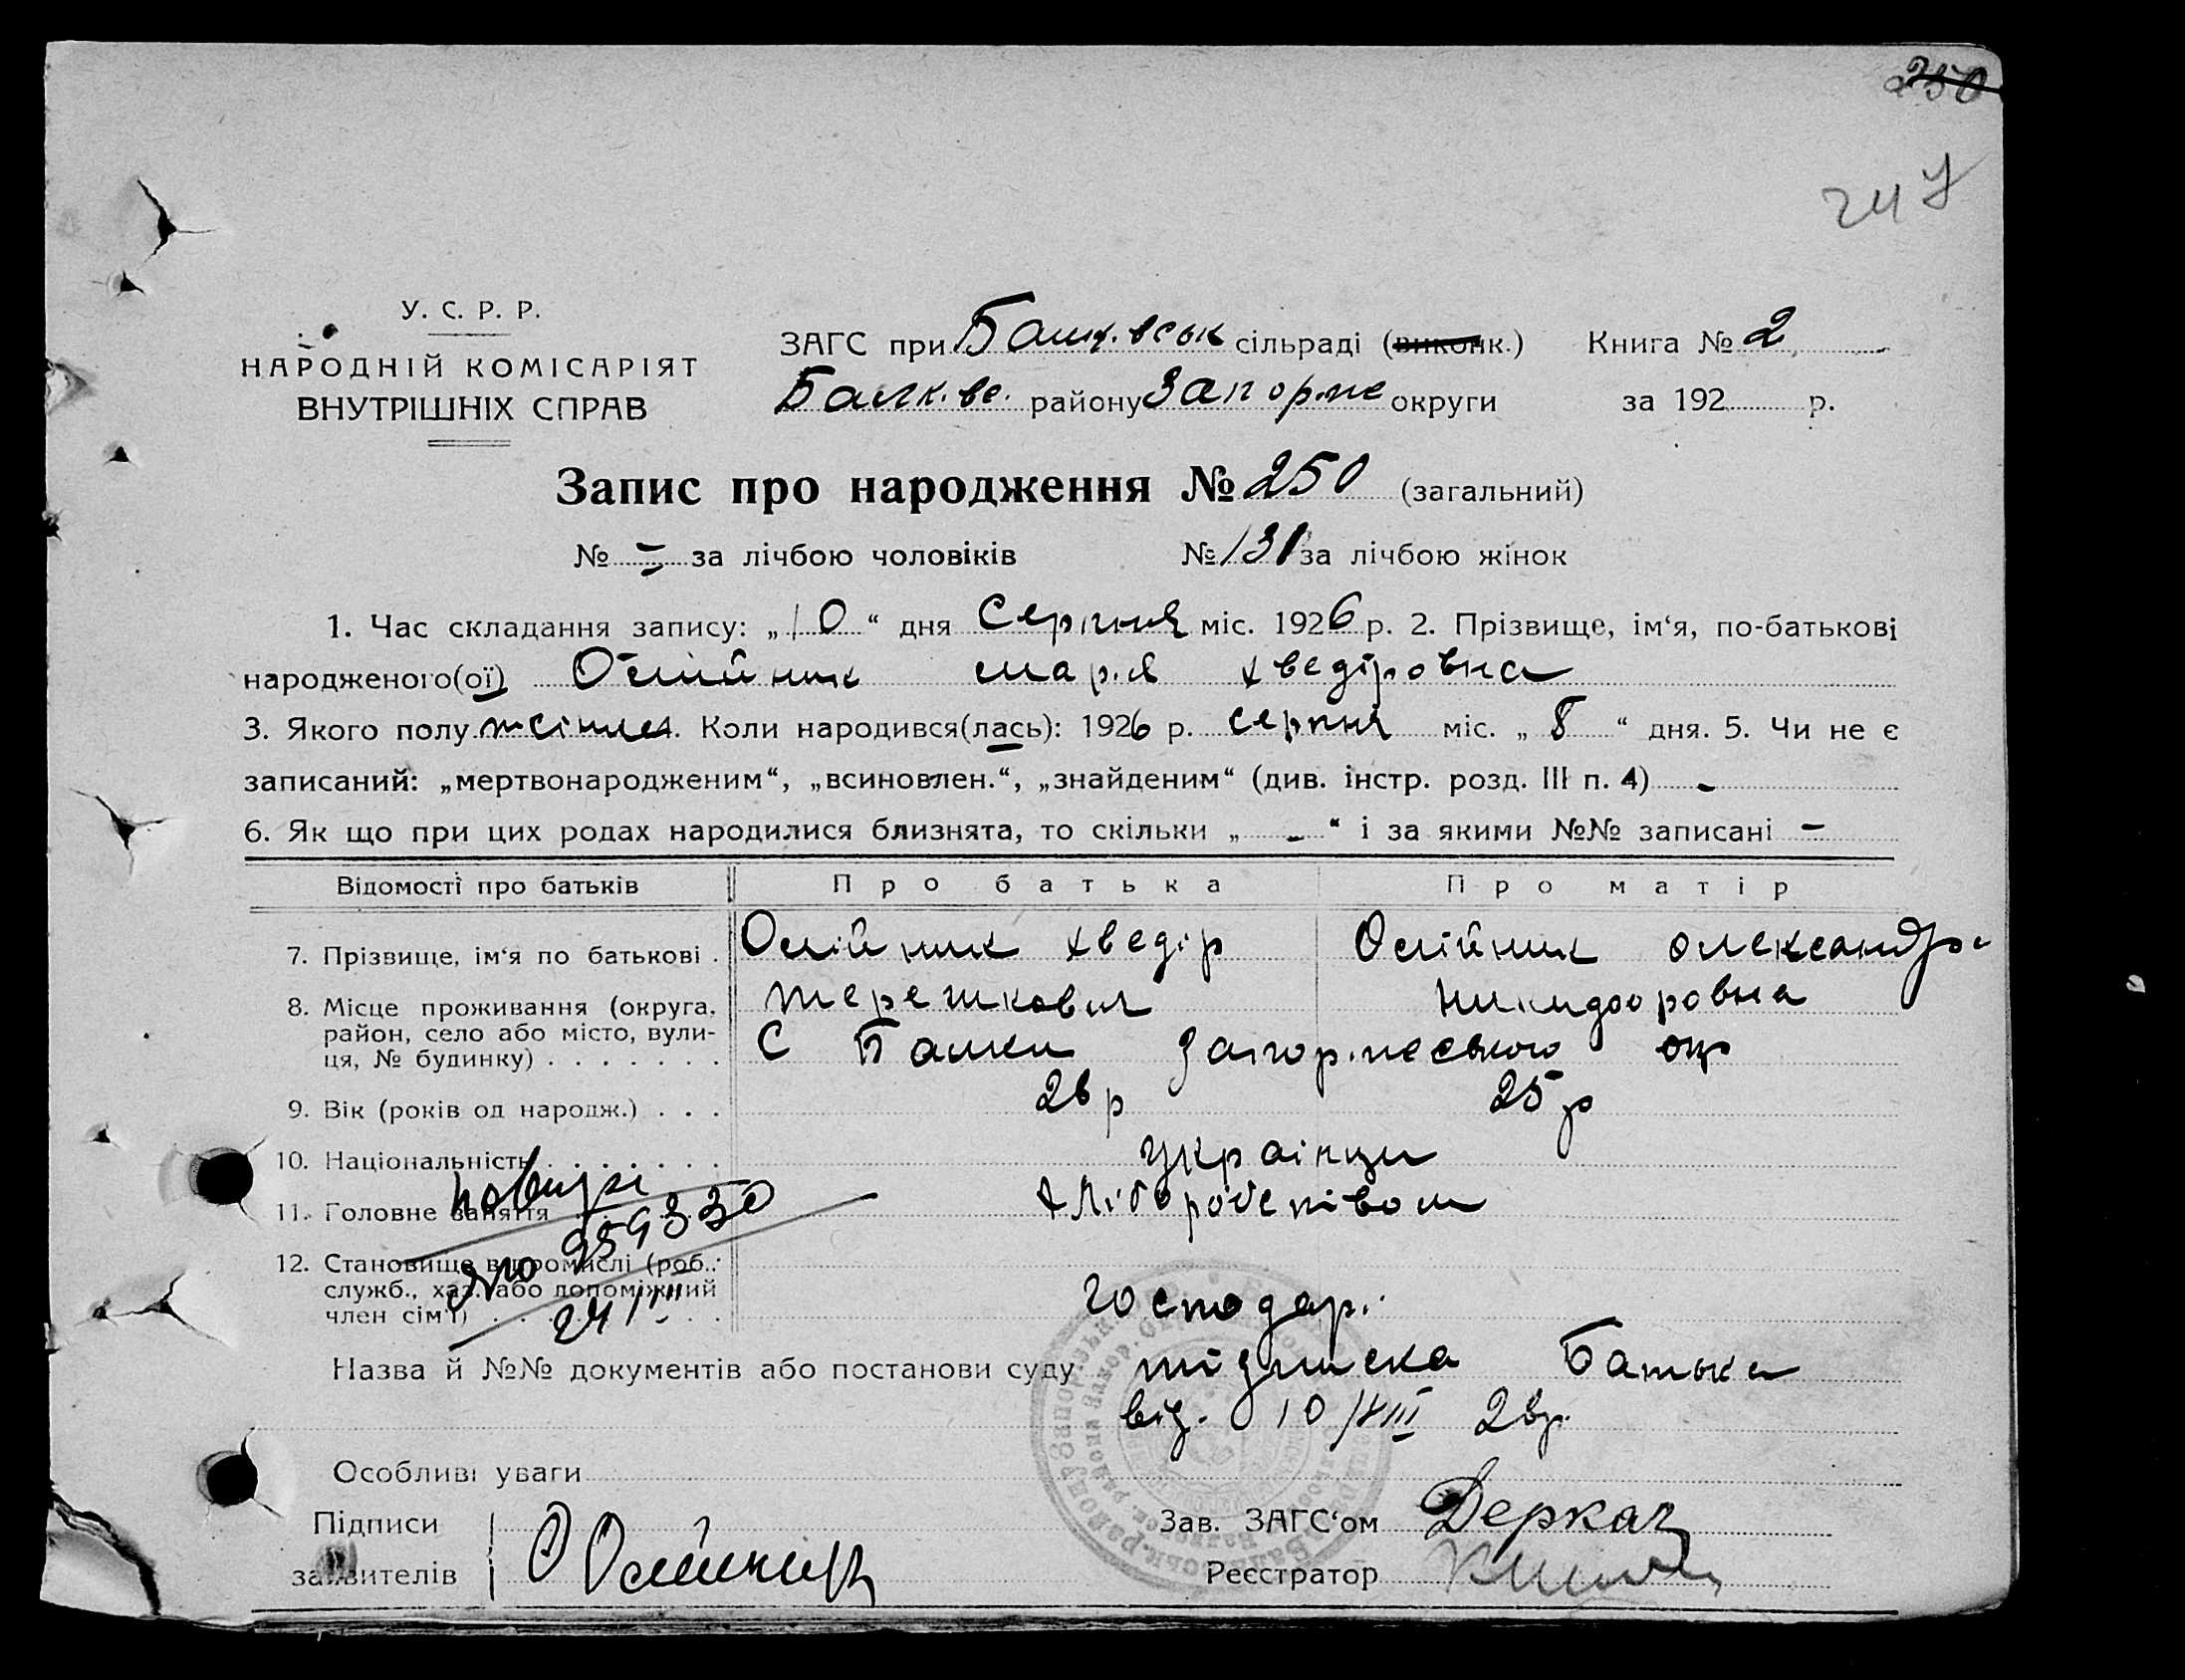 250
247
У. С. Р. Р.
НАРОДНІЙ КОМІСАРІЯТ
ВНУТРІШНІХ СПРАВ
ЗАГС при сільраді (виконк.) Книга № 2
району Запоріже округи за 192 р.
Запис про народження № 250 (загальний)
№ - за лічбою чоловіків № 131 за лічбою жінок
1. Час складання запису: „10“ дня Серпня міс. 1926 р. 2. Прізвище, ім‘я, по-батькові
народженого(ої) Олійник марія хведіровна
3. Якого полу жіноч. Коли народився(лась): 1926 р. серпня міс. „8“ дня. 5. Чи не є
записаний: „мертвонародженим“, „всиновлен.“, „знайденим“ (див. інстр. розд. III п. 4) -
6. Як що при цих родах народилися близнята, то скільки „-“ і за якими №№ записані -
Відомості про батьків Про батька Про матір
7. Прізвище, ім‘я по батькові . Олійник хведір Олійник олександра
8. Місце проживання (округа, терешкович никидоровна
район, село або місто, вули-
ця, № будинку) . . . . . . . С Балки Запоріжеського окр
9. Вік (років од народж.) . . . 26 р 25 р
10. Національність . . . . . . . українци
11. Головне заняття хліборобством
повторне
959330
12. Становище в промислі (роб.,
служб., хаз. або допоміжний
член сім‘ї) . . . . . . господарі
24/III
Назва й №№ документів або постанови суду підписка Батька
від. 10/VIII 26р.
Особливі уваги
Підписи Зав. ЗАГС‘ом Деркач
заявителів Олійник Реєстратор